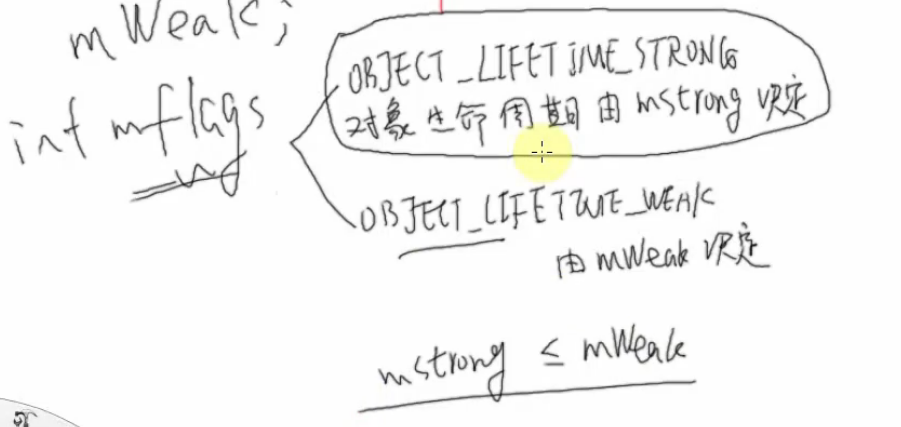 mWeak;
int mflags
OBJECT_LIFETIME_STRONG
对象生命周期由mstrong决定
OBJECT_LIFETIME_WEAK
由mWeak决定
mstrong ≤ mWeak